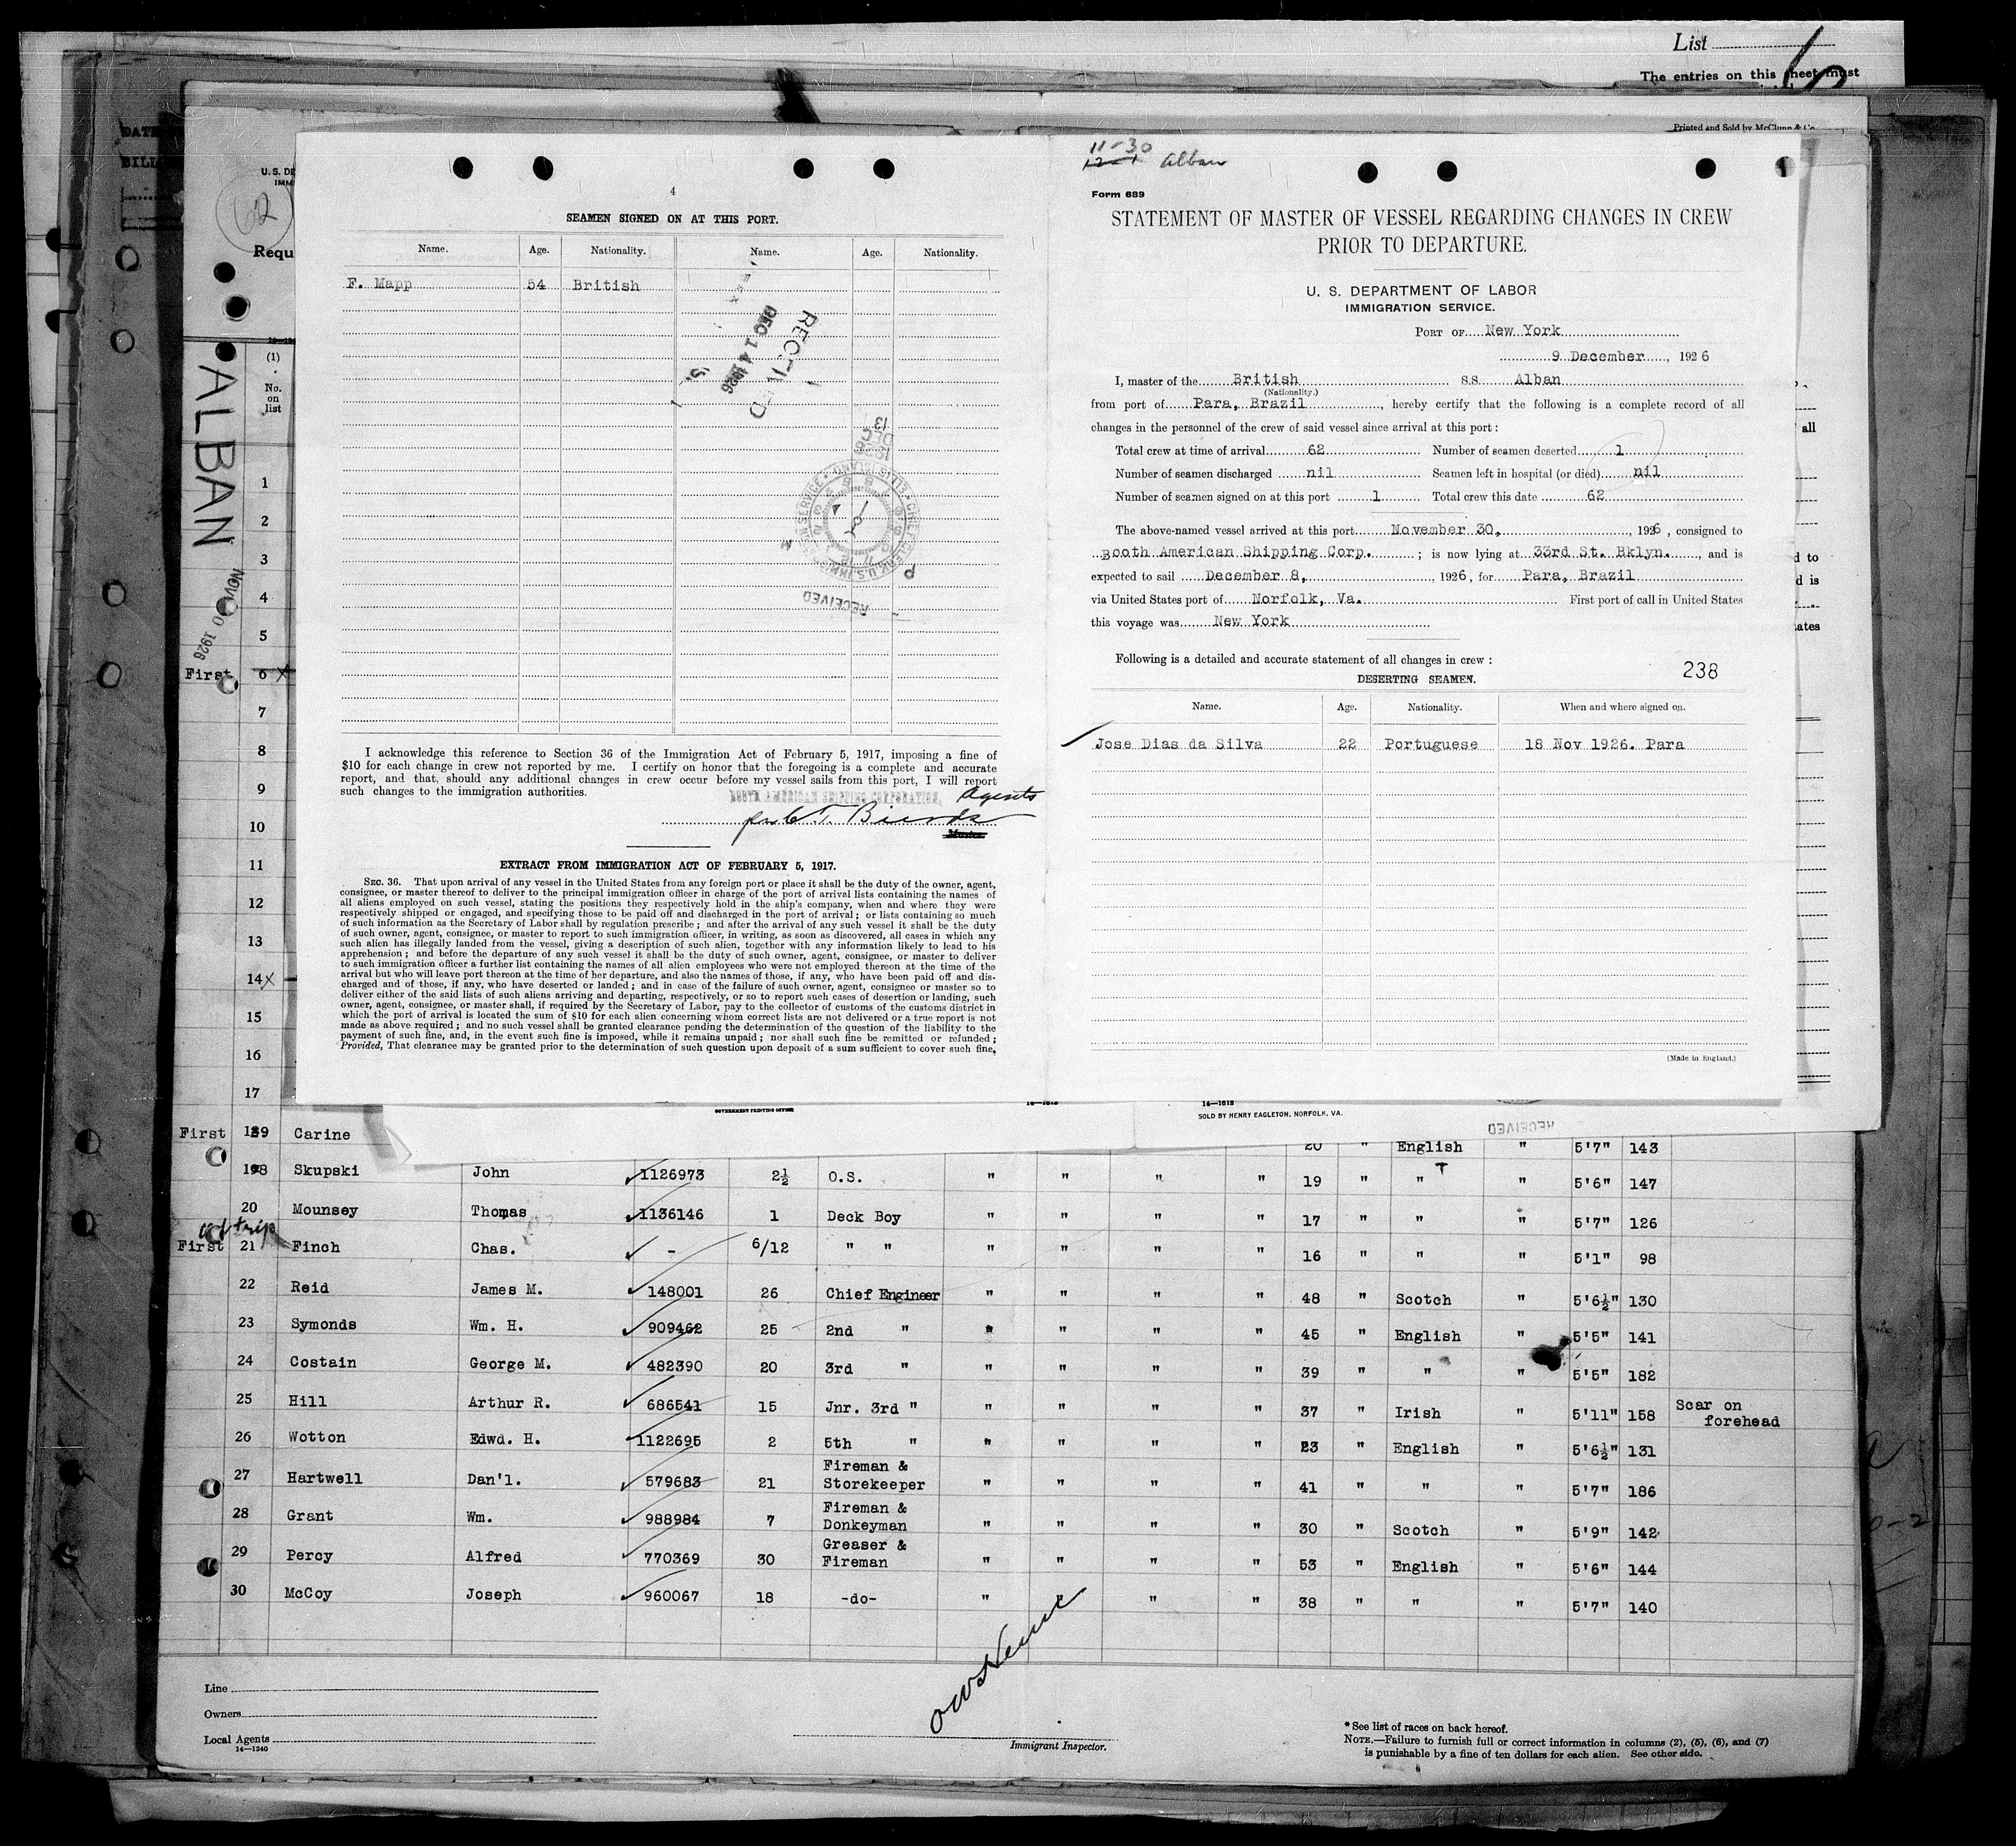 List
The entries on this sheet must
Printed and Sold by McClunn & Co.
DATE
BILL
U. S. DE
IMM
62
Requ
(1)
No.
on
list
ALBAN
NOV 30 1926
1
2
3
4
5
First 6 X
7
8
9
10
11
12
13
14 X
15
16
17
4
SEAMEN SIGNED ON AT THIS PORT.
Name. Age. Nationality. Name. Age. Nationality.
F. Mapp 54 British
RECEIVED
DEC 14 1926
1926
DEC
13
CHIEF CLERK U.S. IMMIGRATION SERVICE • ELLIS ISLAND
RECEIVED
I acknowledge this reference to Section 36 of the Immigration Act of February 5, 1917, imposing a fine of
$10 for each change in crew not reported by me. I certify on honor that the foregoing is a complete and accurate
report, and that, should any additional changes in crew occur before my vessel sails from this port, I will report
such changes to the immigration authorities.
BOOTH AMERICAN SHIPPING CORPORATION, Agents
Master
EXTRACT FROM IMMIGRATION ACT OF FEBRUARY 5, 1917.
SEC. 36. That upon arrival of any vessel in the United States from any foreign port or place it shall be the duty of the owner, agent,
consignee, or master thereof to deliver to the principal immigration officer in charge of the port of arrival lists containing the names of
all aliens employed on such vessel, stating the positions they respectively hold in the ship's company, when and where they were
respectively shipped or engaged, and specifying those to be paid off and discharged in the port of arrival; or lists containing so much
of such information as the Secretary of Labor shall by regulation prescribe; and after the arrival of any such vessel it shall be the duty
of such owner, agent, consignee, or master to report to such immigration officer, in writing, as soon as discovered, all cases in which any
such alien has illegally landed from the vessel, giving a description of such alien, together with any information likely to lead to his
apprehension; and before the departure of any such vessel it shall be the duty of such owner, agent, consignee, or master to deliver
to such immigration officer a further list containing the names of all alien employees who were not employed thereon at the time of the
arrival but who will leave port thereon at the time of her departure, and also the names of those, if any, who have been paid off and dis-
charged and of those, if any, who have deserted or landed; and in case of the failure of such owner, agent, consignee or master so to
deliver either of the said lists of such aliens arriving and departing, respectively, or so to report such cases of desertion or landing, such
owner, agent, consignee, or master shall, if required by the Secretary of Labor, pay to the collector of customs of the customs district in
which the port of arrival is located the sum of $10 for each alien concerning whom correct lists are not delivered or a true report is not
made as above required; and no such vessel shall be granted clearance pending the determination of the question of the liability to the
payment of such fine, and, in the event such fine is imposed, while it remains unpaid; nor shall such fine be remitted or refunded;
Provided, That clearance may be granted prior to the determination of such question upon deposit of a sum sufficient to cover such fine.
11-30
12-1 Alban
Form 689
STATEMENT OF MASTER OF VESSEL REGARDING CHANGES IN CREW
PRIOR TO DEPARTURE.
U. S. DEPARTMENT OF LABOR
IMMIGRATION SERVICE.
PORT OF New York
9 December, 1926
I, master of the British S.S. Alban
(Nationality.)
from port of Para, Brazil, hereby certify that the following is a complete record of all
changes in the personnel of the crew of said vessel since arrival at this port:
Total crew at time of arrival 62 Number of seamen deserted 1
Number of seamen discharged nil Seamen left in hospital (or died) nil
Number of seamen signed on at this port 1 Total crew this date 62
The above-named vessel arrived at this port November 30, 1926, consigned to
Booth American Shipping Corp.; is now lying at 33rd St. Bklyn., and is
expected to sail December 8, 1926, for Para, Brazil
via United States port of Norfolk, Va. First port of call in United States
this voyage was New York
Following is a detailed and accurate statement of all changes in crew:
238
DESERTING SEAMEN.
Name. Age. Nationality. When and where signed on.
Jose Dias da Silva 22 Portuguese 18 Nov 1926. Para
(Made in England.)
all
d to
d is
ates
GOVERNMENT PRINTING OFFICE
14—1613
14—1613
SOLD BY HENRY EAGLETON, NORFOLK, VA.
RECEIVED
First 189 Carine 20 " English " 5'7" 143
198 Skupski John 1126973 2½ O.S. " " " " 19 " " " 5'6" 147
20 Mounsey Thomas 1136146 1 Deck Boy " " " " 17 " " " 5'7" 126
of trip
First 21 Finch Chas. - 6/12 " " " " " " 16 " " " 5'1" 98
22 Reid James M. 148001 26 Chief Engineer " " " " 48 " Scotch " 5'6½" 130
23 Symonds Wm. H. 909462 25 2nd " " " " " 45 " English " 5'5" 141
24 Costain George M. 482390 20 3rd " " " " " 39 " " " 5'5" 182
25 Hill Arthur R. 686541 15 Jnr. 3rd " " " " " 37 " Irish " 5'11" 158 Scar on
forehead
26 Wotton Edwd. H. 1122695 2 5th " " " " " 23 " English " 5'6½" 131
27 Hartwell Dan'l. 579683 21 Fireman &
Storekeeper " " " " 41 " " " 5'7" 186
28 Grant Wm. 988984 7 Fireman &
Donkeyman " " " " 30 " Scotch " 5'9" 142
29 Percy Alfred 770369 30 Greaser &
Fireman " " " " 53 " English " 5'6" 144
30 McCoy Joseph 960067 18 -do- " " " " 38 " " " 5'7" 140
Line
Owners
Local Agents
14—1240
Immigrant Inspector.
* See list of races on back hereof.
NOTE.—Failure to furnish full or correct information in columns (2), (5), (6), and (7)
is punishable by a fine of ten dollars for each alien. See other side.